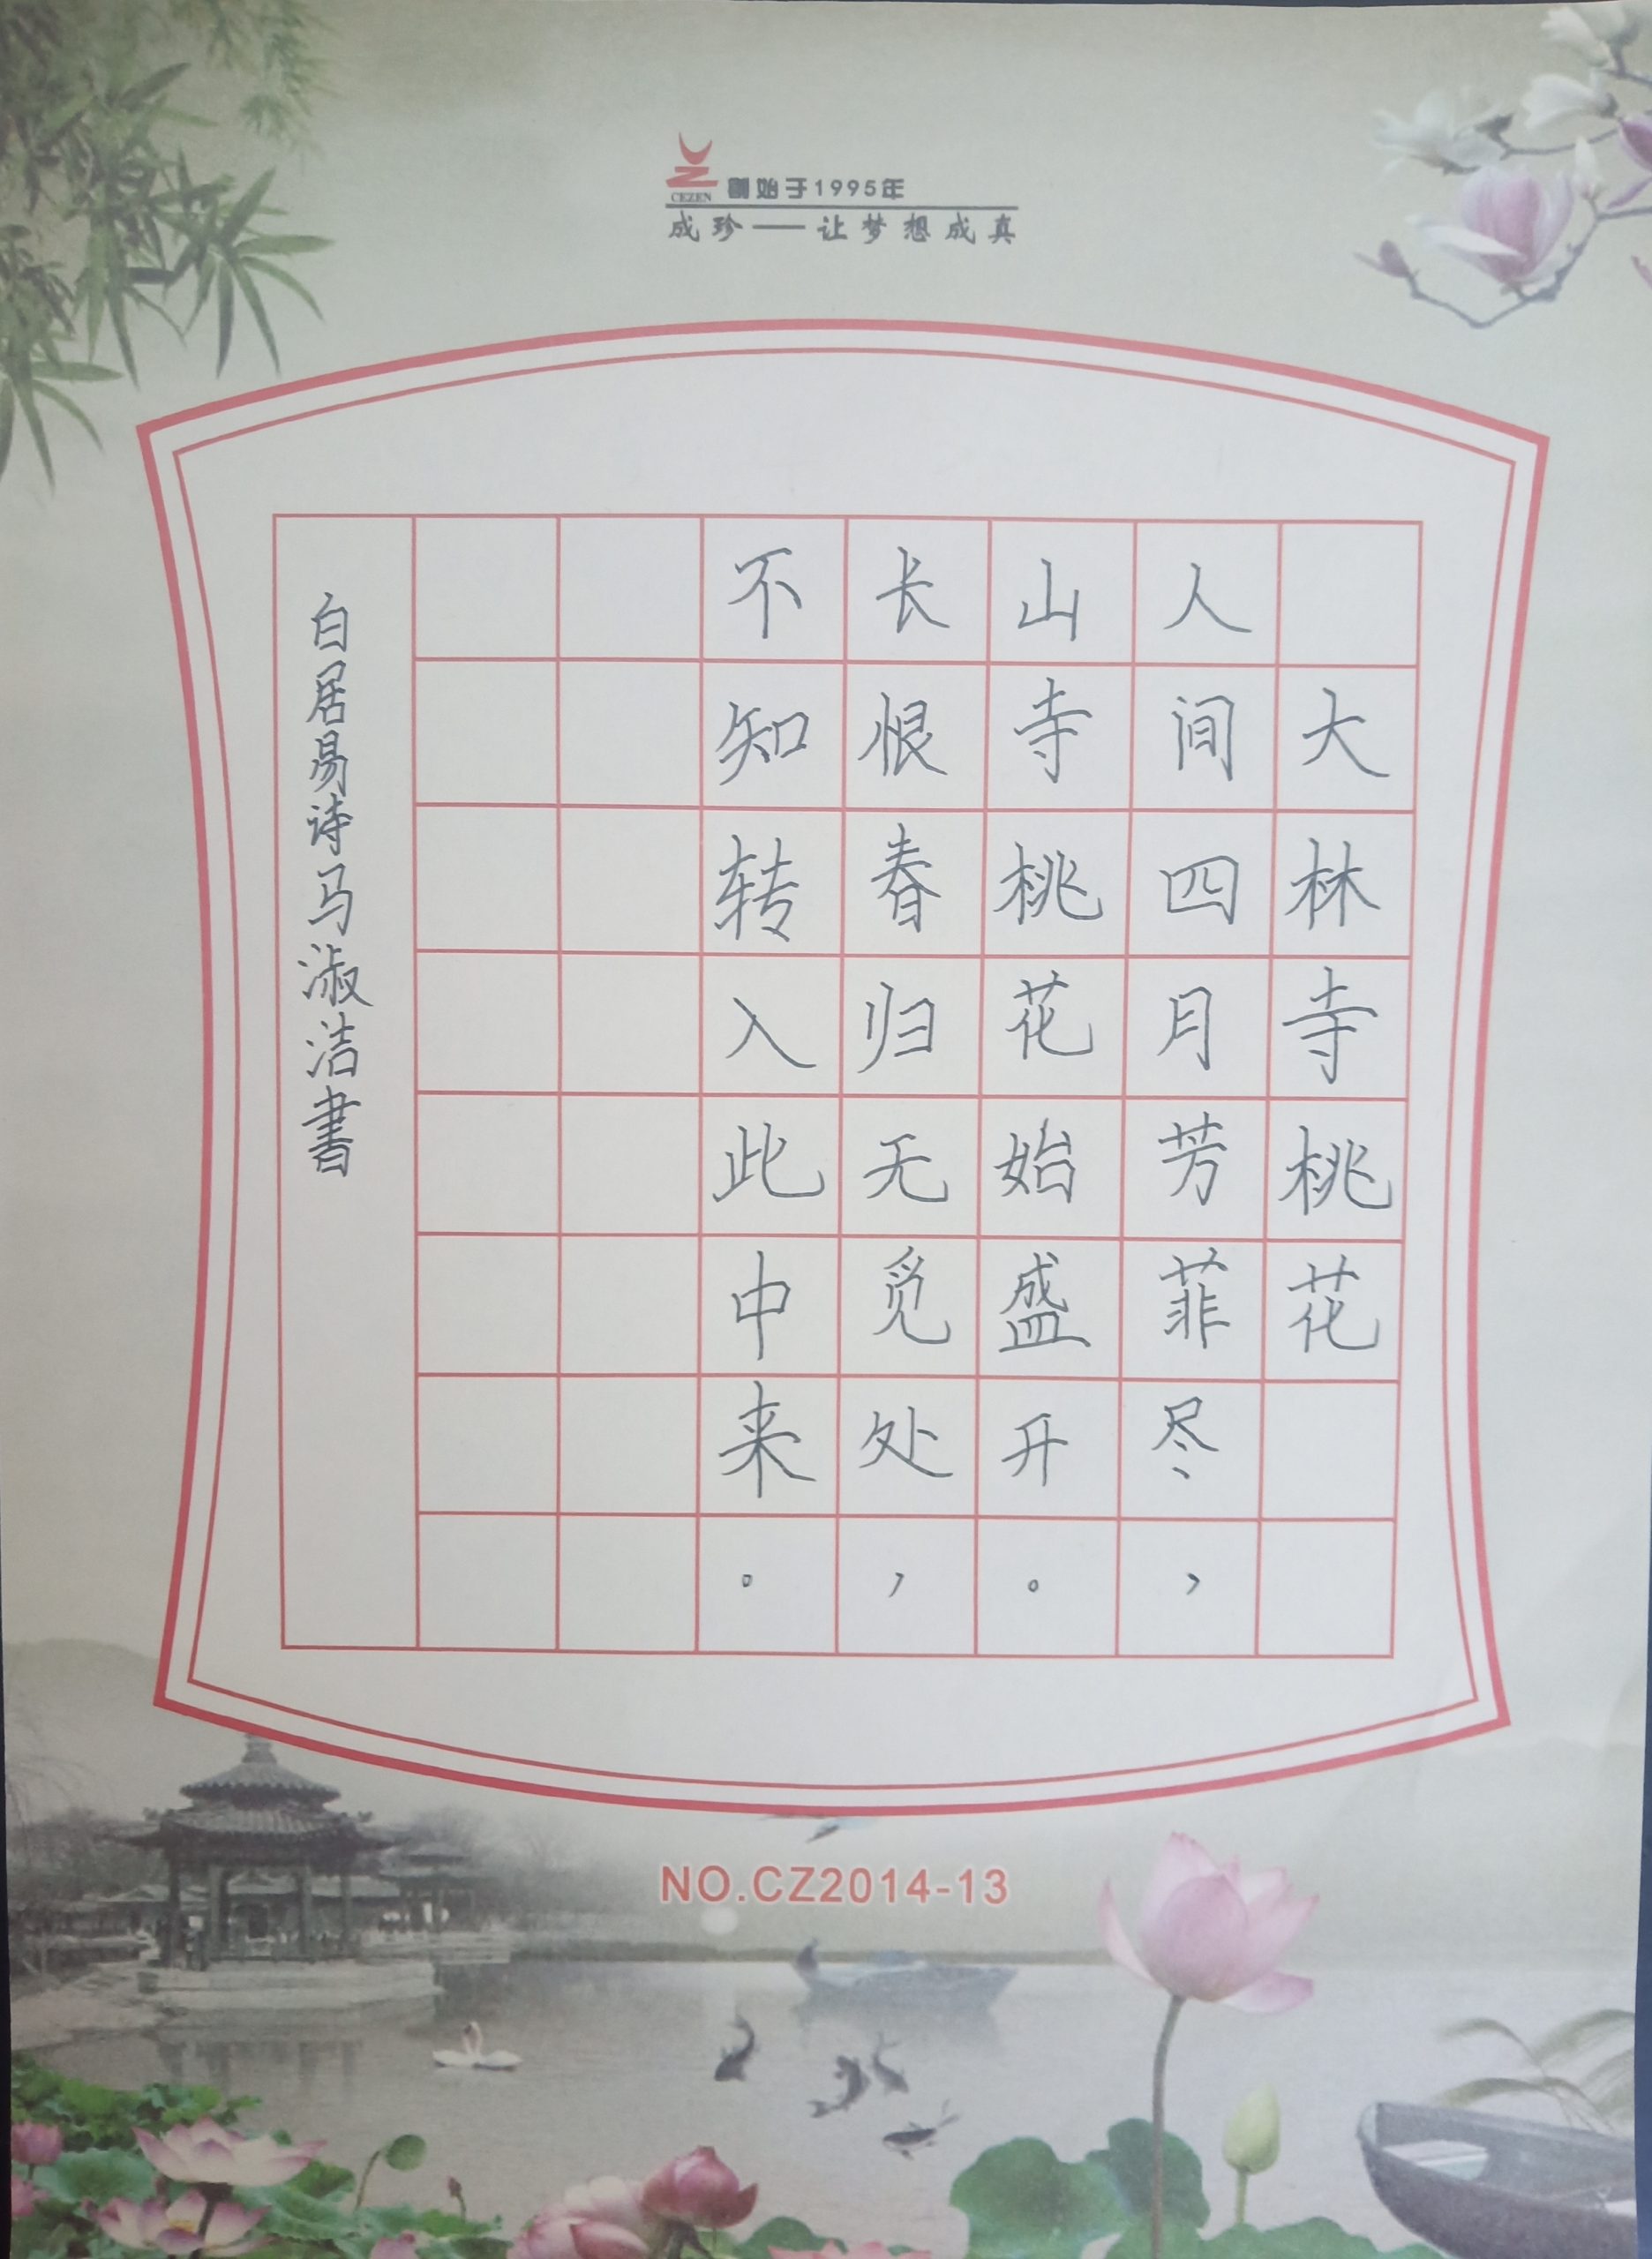 CEZEN 創始于1995年
成珍——让梦想成真
大林寺桃花
人间四月芳菲尽，
山寺桃花始盛开。
长恨春归无觅处，
不知转入此中来。
白居易诗马淑洁書
NO.CZ2014-13